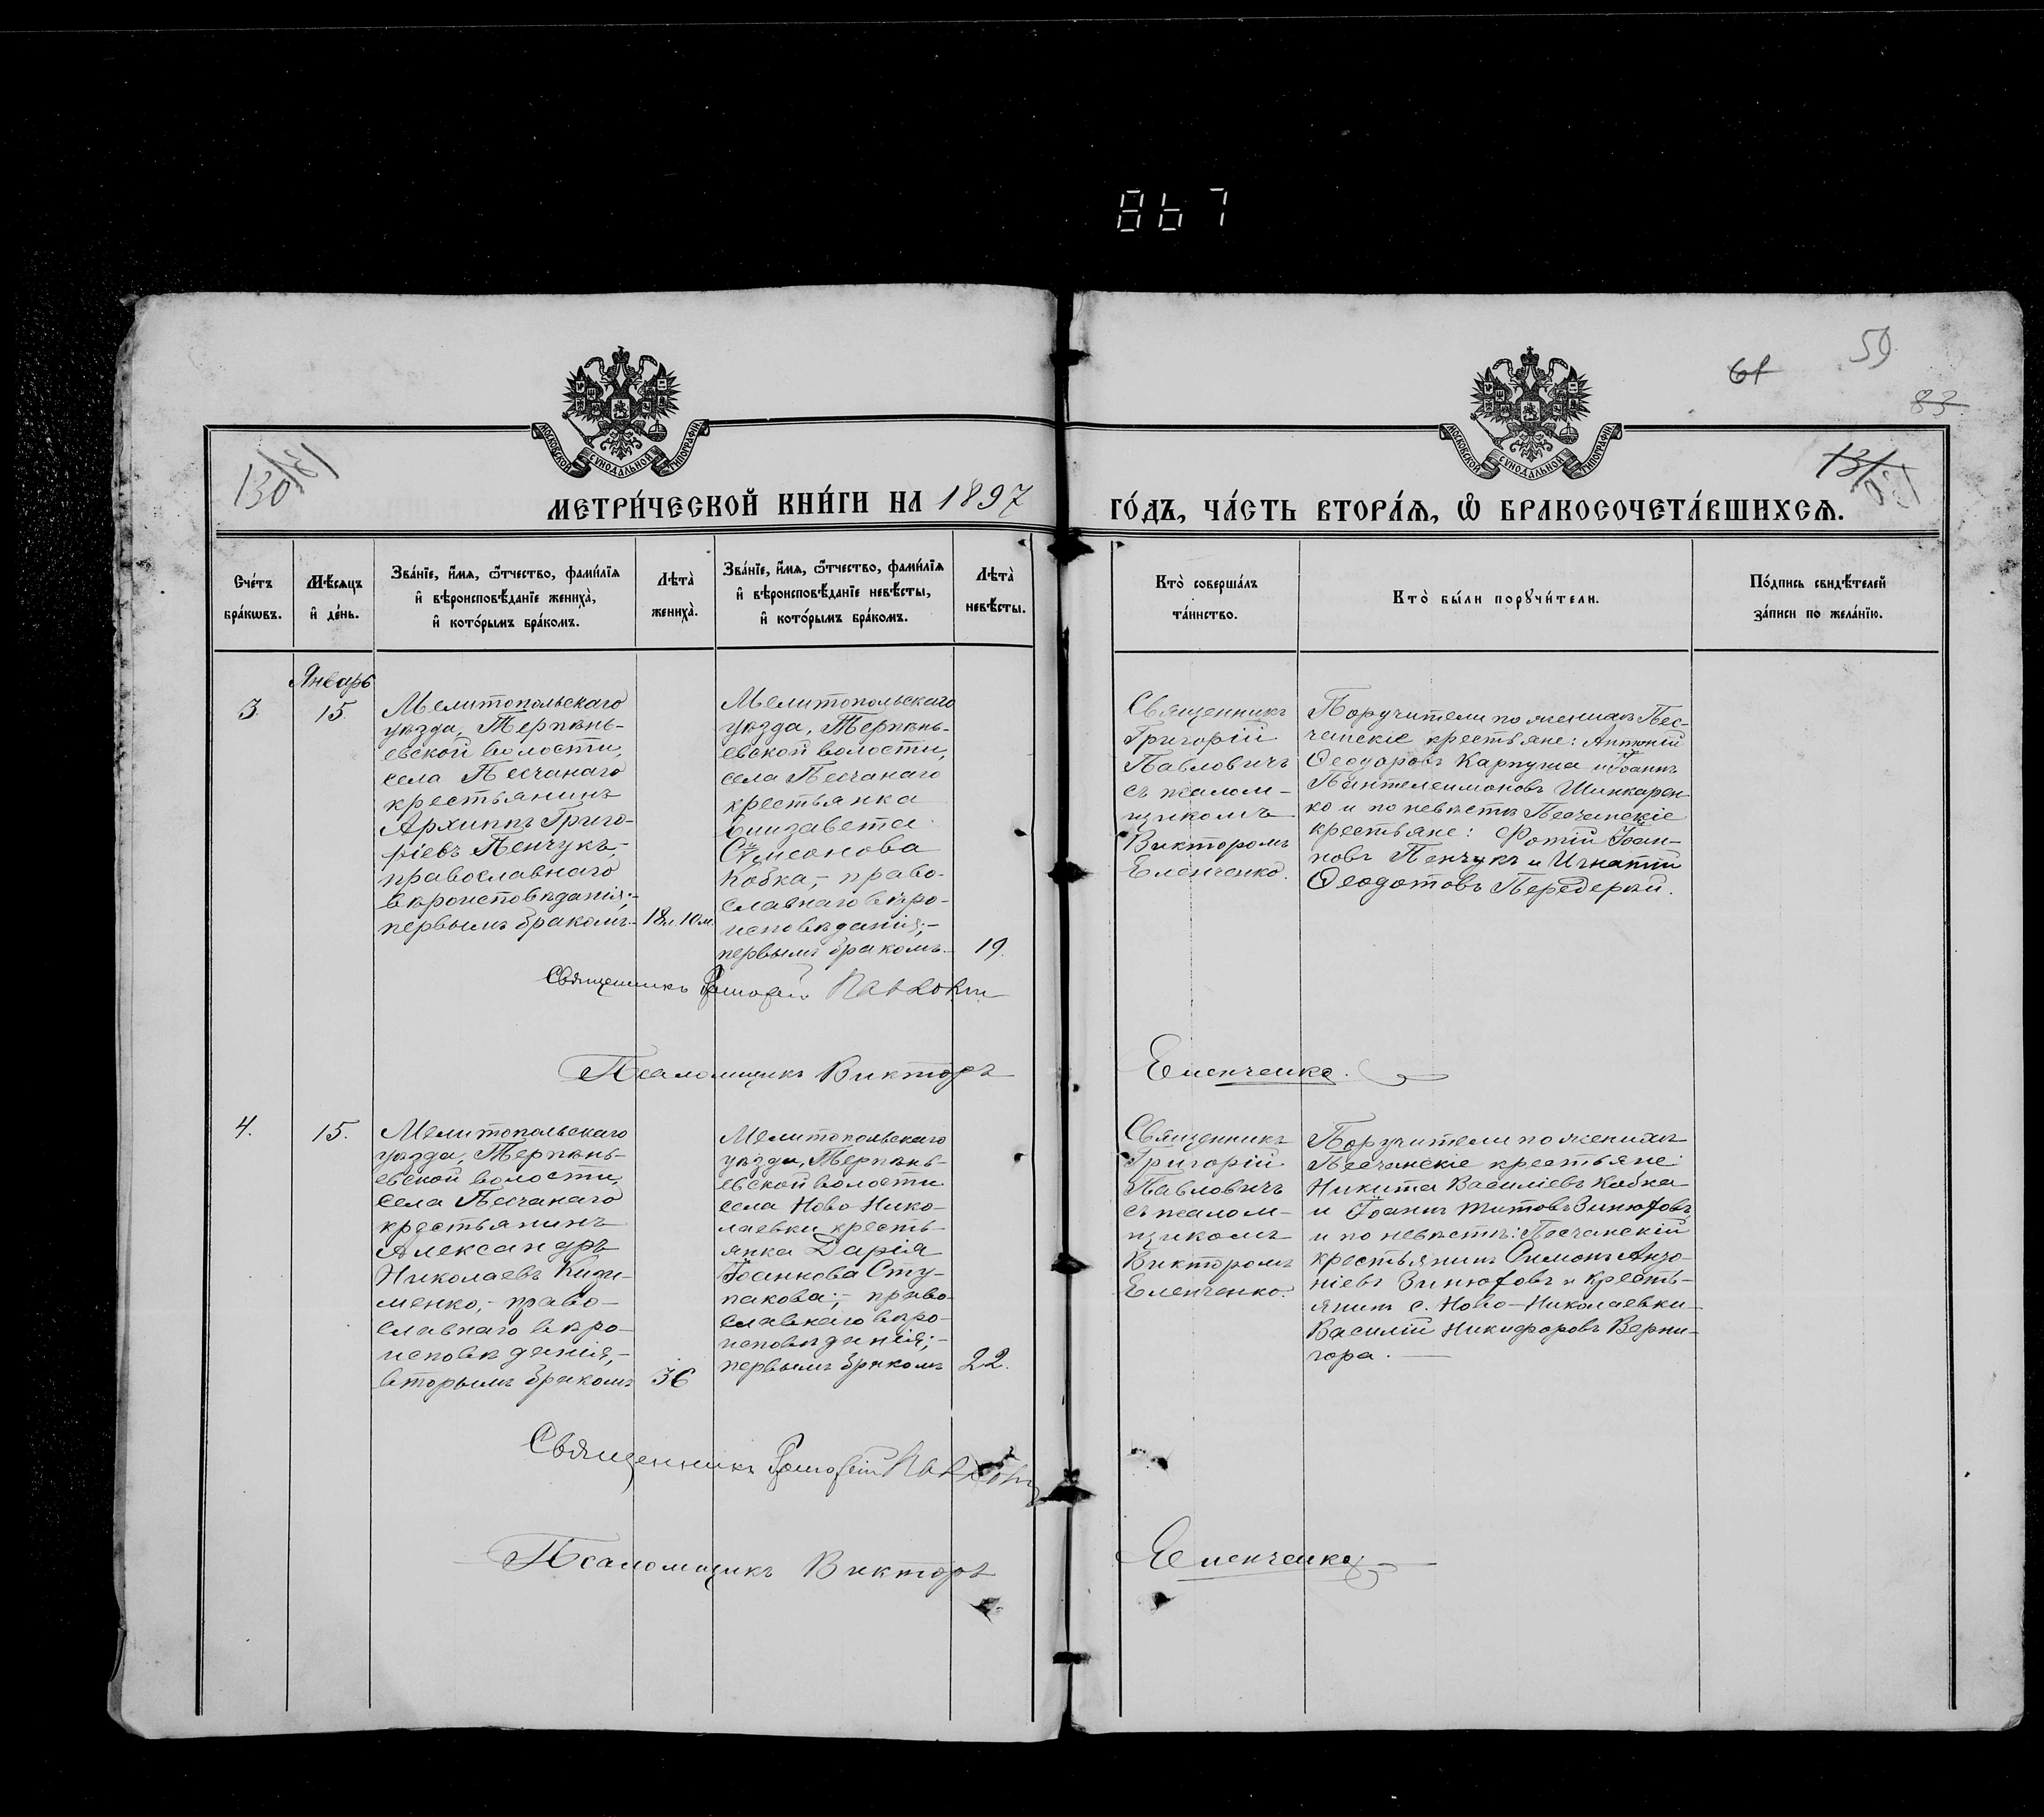 867
59
61
83
130/131
131
МОСКОВСКОЙ СУНОДАЛЬНОЙ ТИПОГРАФІИ
МОСКОВСКОЙ СУНОДАЛЬНОЙ ТИПОГРАФІИ
МЕТРИ́ЧЕСКОЙ КНИ́ГИ НА 1897
ГО́ДЪ, ЧА́СТЬ ВТОРА́Ѧ, Ѽ БРАКОСОЧЕТА́ВШИХСѦ.
Сче́тъ
бра́кѡвъ.
Мѣ́сѧцъ
и҆ де́нь.
Зва́нїе, и҆́мѧ, ѻ҆́тчество, фами́лїѧ
и҆ вѣроисповѣ́данїе жениха̀,
и҆ кото́рымъ бра́комъ.
Лѣта̀
жениха̀.
Зва́нїе, и҆́мѧ, ѻ҆́тчество, фами́лїѧ
и҆ вѣроисповѣ́данїе невѣ́сты,
и҆ кото́рымъ бра́комъ.
Лѣта̀
невѣ́сты.
Кто̀ соверша́лъ
та́инство.
Кто̀ бы́ли порꙋчи́тели.
По́дпись свидѣ́телей
за́писи по жела́нїю.
Январь
3.
15
Мелитопольскаго
уѣзда, Терпѣнь-
евской волости,
села Песчанаго
крестьянинъ
Архиппъ Григо-
ріевъ Пенчукъ,-
православнаго
вѣроисповѣданія;-
первымъ бракомъ.-
18 л. 10 м.
Мелитопольскаго
уѣзда, Терпѣнь-
евской волости,
села Песчанаго
крестьянка
Елизавета
Сѵмеонова
Кобка,- право-
славнаго вѣро-
исповѣданія;-
первымъ бракомъ.-
19.
Священникъ
Григорій
Павловичъ
съ псалом-
щикомъ
Викторомъ
Еленченко.
Поручители по женихѣ Пес-
чанскіе крестьяне: Антоній
Ѳеодоровъ Карпуша и Іоаннъ
Пантелеимоновъ Шинкарен-
ко и по невѣстѣ Песчанскіе
крестьяне: Фотій Іоан-
новъ Пенчукъ и Игнатій
Ѳеодотовъ Передерій.
Священникъ Григорій Павловичъ
Псаломщикъ Викторъ
Еленченко.
4.
15.
Мелитопольскаго
уѣзда, Терпѣнь-
евской волости,
села Песчанаго
крестьянинъ
Александръ
Николаевъ
менко,- право-
славнаго вѣро-
исповѣданія,-
вторымъ бракомъ
36
Мелитопольскаго
уѣзда, Терпѣнь-
евской волости
села Ново-Нико-
лаевки кресть-
янка Дарія
Іоаннова Сту-
пакова;- право-
славнаго вѣро-
исповѣданія;-
первымъ бракомъ
22.
Священникъ
Григорій
Павловичъ
съ псалом-
щикомъ
Викторомъ
Еленченко.
Поручители по женихѣ
Песчанскіе крестьяне:
Никита Василіевъ Кобка
и Іоаннъ Титовъ Зинюковъ,
и по невѣстѣ: Песчанскій
крестьянинъ Симонъ
ніевъ Зинюковъ и кресть-
янинъ с. Ново-Николаевки
Василій Никифоровъ Верни-
гора.
Священникъ Григорій Павловичъ
Псаломщикъ Викторъ
Еленченко